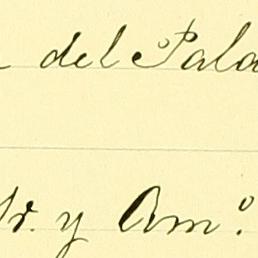 del Pala
Sr. y Amº.